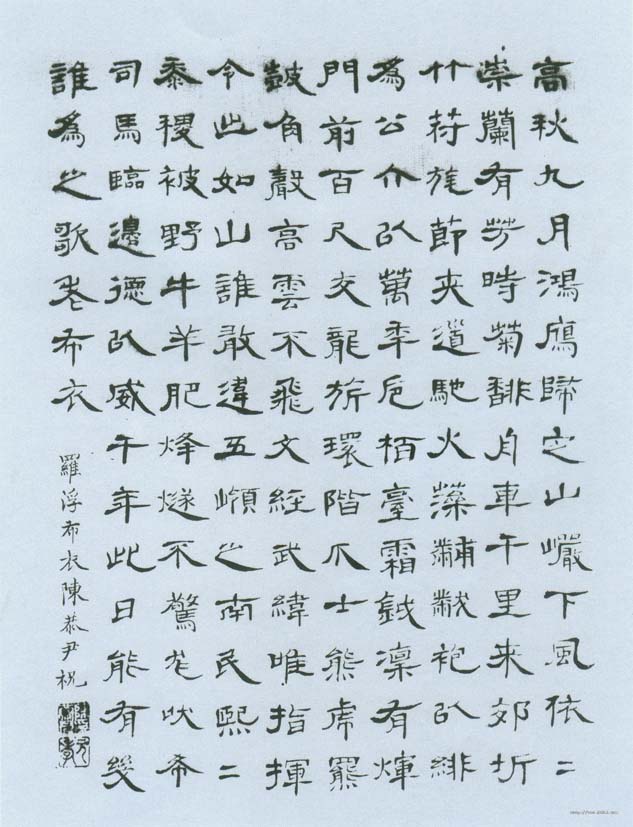 高秋九月鴻鴈歸定山巖下風依二
崇蘭有芳時菊馡車千里来郊圻
竹苻旄節夾道馳火藻黼黻袍以緋
為公介以萬年卮栢臺霜鉞凜有煇
門前百尺交龍旂環階爪士熊虎羆
鼓角聲高雲不飛文經武緯唯指揮
令出如山誰敢違五嶺之南民熙二
黍稷被野牛羊肥烽燧不驚尨吠希
司馬臨邊德以威千年此日能有幾
誰為之歌老布衣
羅浮布衣陳恭尹祝